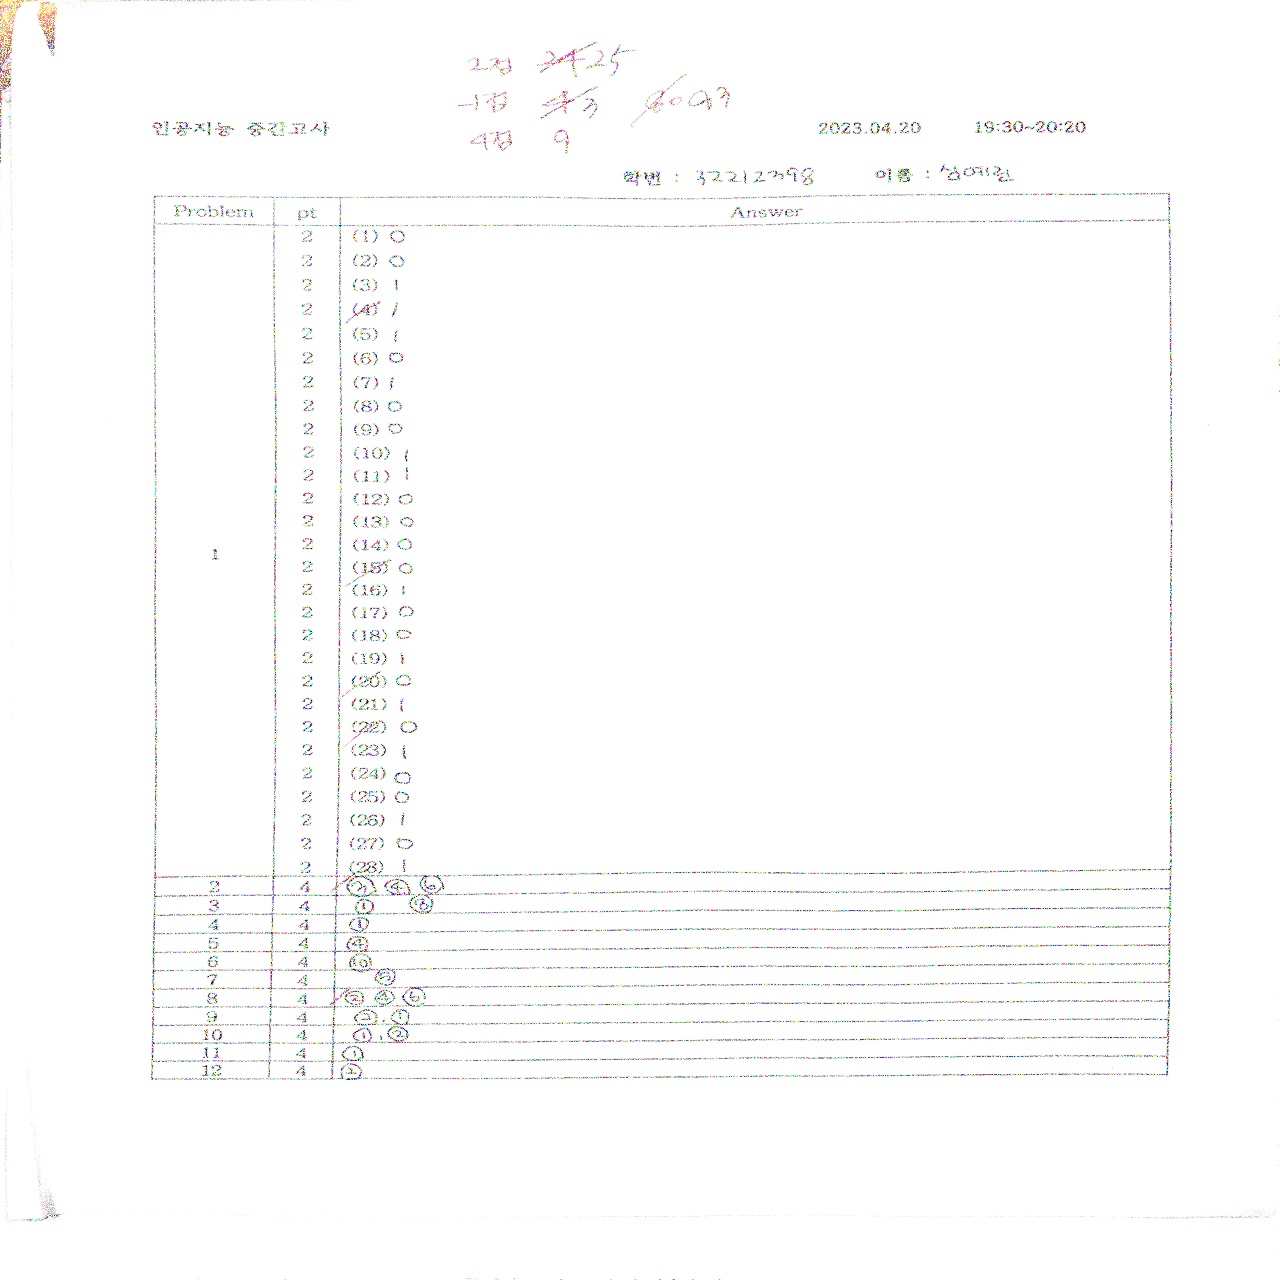 2점 24 25
-1점 4 3 60 93
4점 9
인공지능 중간고사 2023.04.20 19:30~20:20
학번 : 32212398 이름 :
Problem pt Answer
2 (1) 0
2 (2) 0
2 (3) 1
2 (4) 1
2 (5) 1
2 (6) 0
2 (7) 1
2 (8) 0
2 (9) 0
2 (10) 1
2 (11) 1
2 (12) 0
2 (13) 0
2 (14) 0
1
2 (15) 0
2 (16) 1
2 (17) 0
2 (18) 0
2 (19) 1
2 (20) 0
2 (21) 1
2 (22) 0
2 (23) 1
2 (24) 0
2 (25) 0
2 (26) 1
2 (27) 0
2 (28) 1
2 4 ④ ⑥
3 4 ①
4 4 ①
5 4 ④
6 4 ⑩
7 4 ⑤
8 4 ② ④ ⑥
9 4 ①
10 4 ①, ②
11 4 ①
12 4